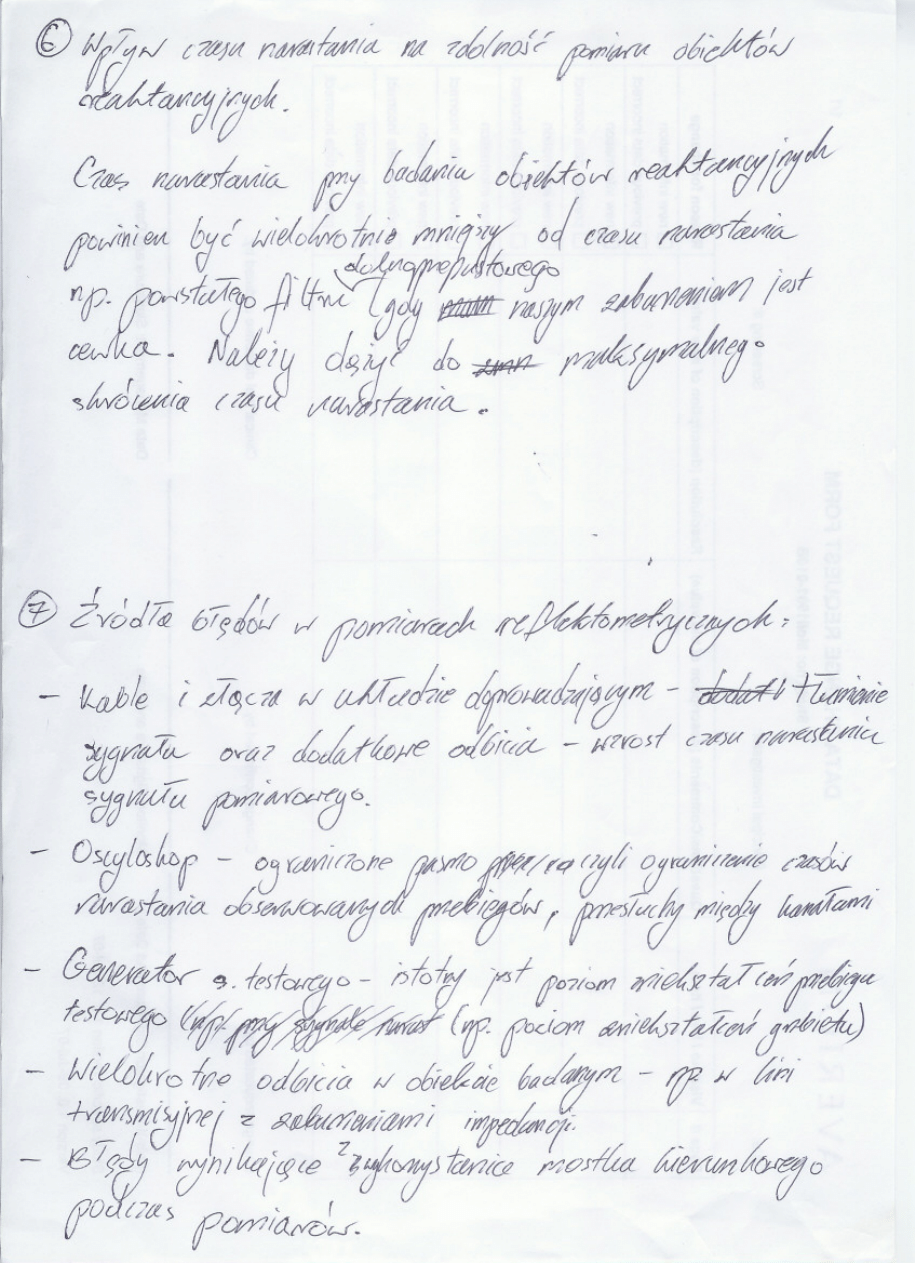 ⑥ Wpływ czasu narastania na zdolność pomiaru obiektów
reaktancyjnych.
Czas narastania przy badaniu obiektów reaktancyjnych
powinien być wielokrotnie mniejszy od czasu narastania
dolnoprzepustowego
np. powstałego filtru (gdy naszym zaburzeniem jest
cewka. Należy dążyć do maksymalnego
skrócenia czasu narastania.
⑦ Źródła błędów w pomiarach reflektometrycznych:
- Kable i złącza w układzie doprowadzającym - tłumienie
sygnału oraz dodatkowe odbicia - wzrost czasu narastania
sygnału pomiarowego.
- Oscyloskop - ograniczone pasmo czyli ograniczenie czasów
narastania obserwowanych przebiegów, przesłuchy między kanałami
- Generator s. testowego - istotny jest poziom zniekształceń przebiegu
testowego (np. poziom zniekształceń grzbietu)
- Wielokrotne odbicia w obiekcie badanym - np. w linii
transmisyjnej z zaburzeniami impedancji.
- Błędy wynikające z wykorzystania mostka kierunkowego
podczas pomiarów.